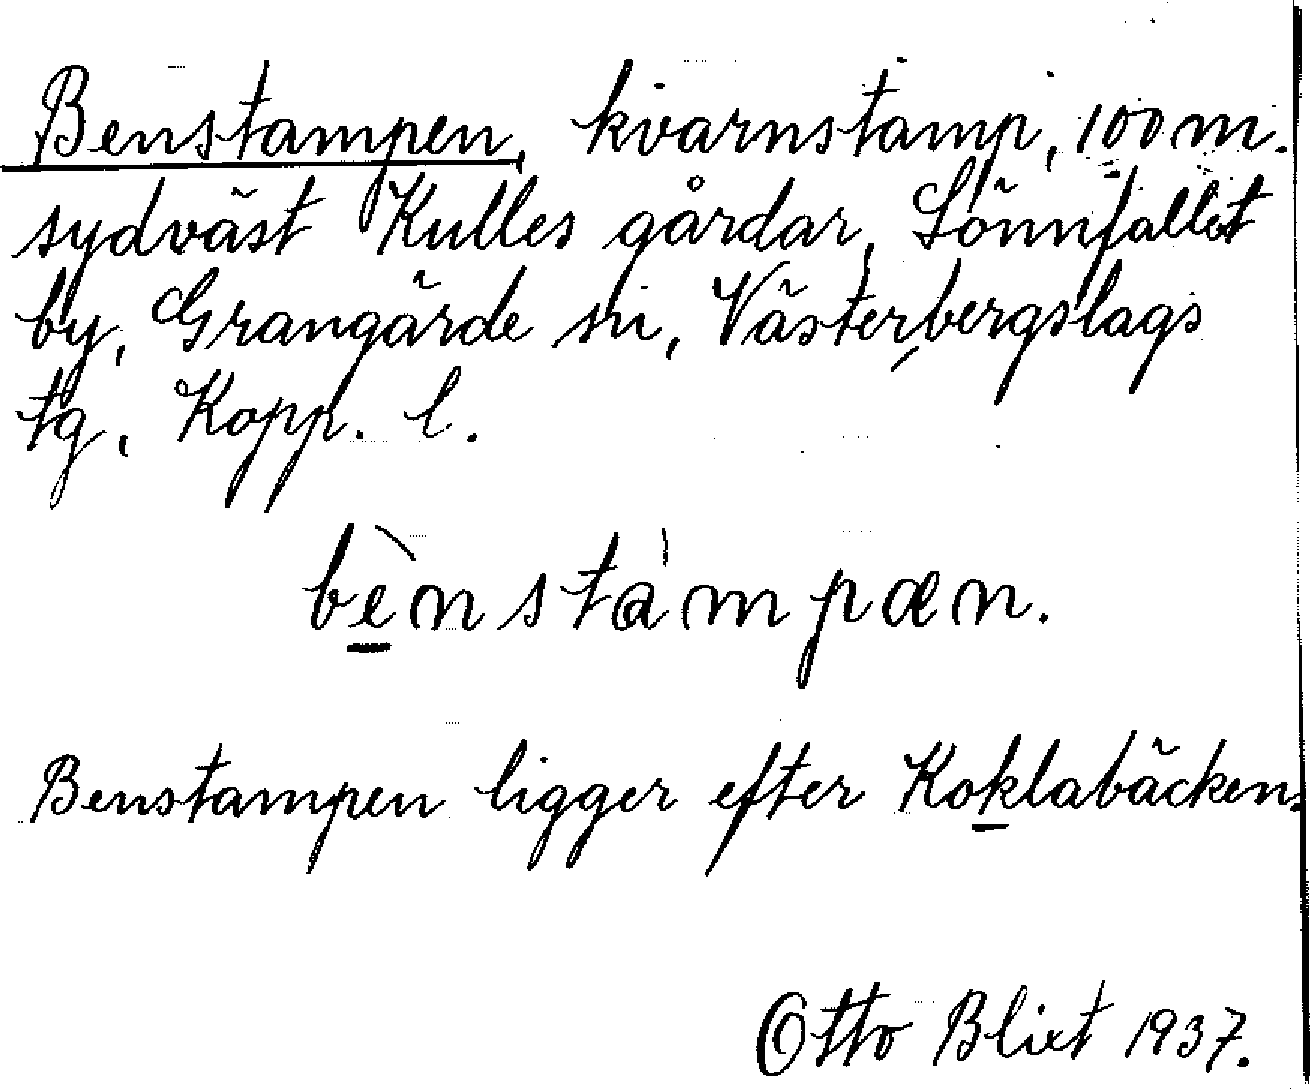 Benstampen, kvarnstamp, 100 m.
sydväst Kulles gårdar, Lönnfallet
by, Grangärde sn, Västerbergslags
tg, Kopp. l.
bènstàmpæn.
Benstampen ligger efter Koklabäcken.
Otto Blixt 1937.